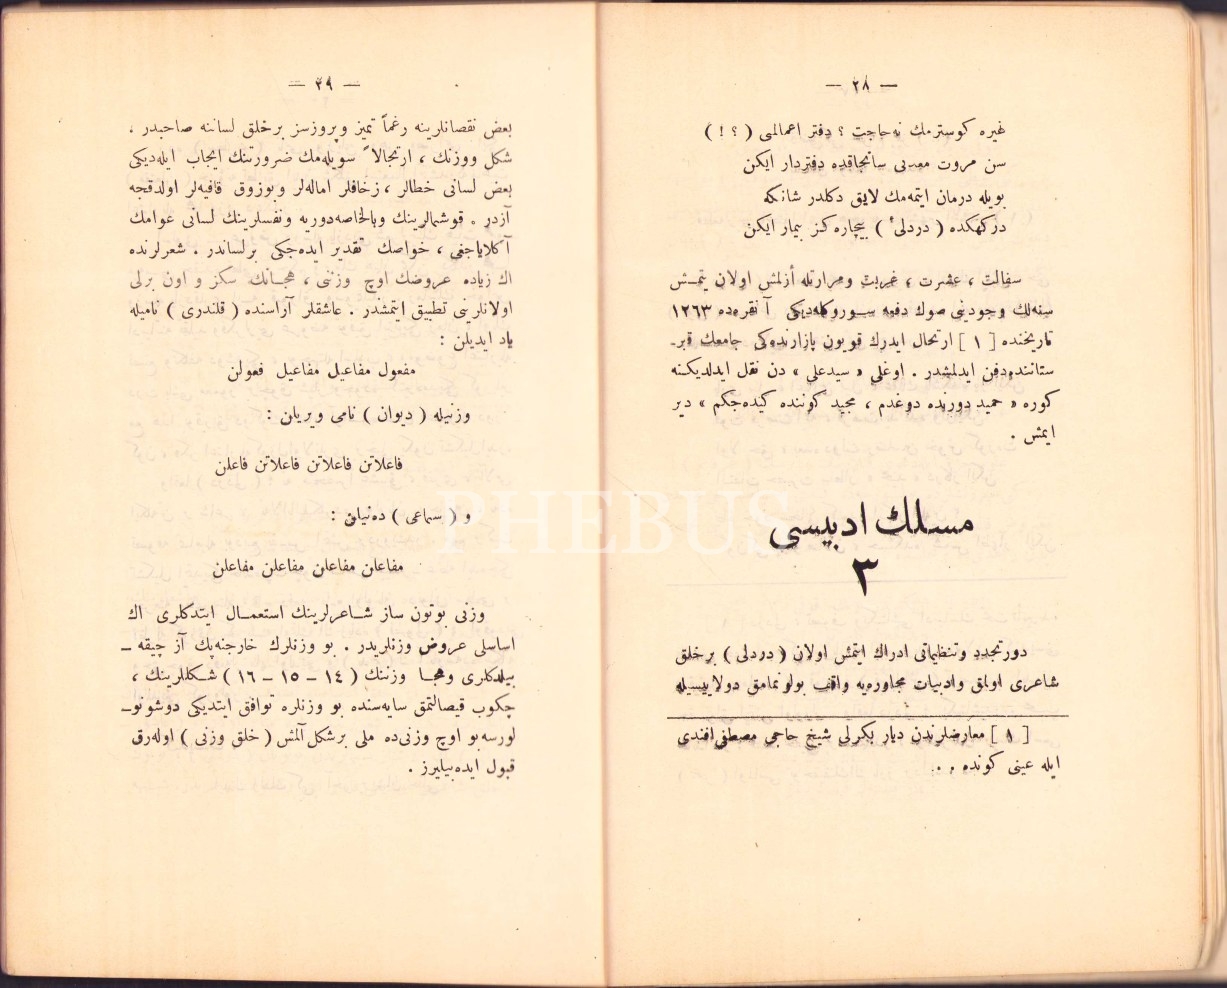 — ٢٨ —
غيره كوسترمك نه حاجت ؟ دفتر اعمالمى ( ؟ ! )
سن مروت معدنى سانجاقده دفتردار ايكن
بويله درمان ايتمه‌مك لايق دكلدر شانكه
دركهكده ( دردلى ) بيچاره كز بيمار ايكن
سفالت ، عشرت ، غربت ومرارتله أزلمش اولان يتمش
سنه‌لك وجودينى صوك دفعه سوروكله‌ديكى آنقره‌ده ١٢٦٣
تاريخنده [ ١ ] ارتحال ايدرك قويون پازارنده‌كى جامعك قبر-
ستاننده دفن ايدلمشدر . اوغلى « سيدعلى » دن نقل ايدلديكنه
كوره « حميد دورنده دوغدم ، مجيد كوننده كيده‌جكم » دير
ايمش .
مسلك ادبيسى
٣
دور تجدد وتنظيماتى ادراك ايتمش اولان ( دردلى ) بر خلق
شاعرى اولمق وادبيات مجاوره‌يه واقف بولونمامق دولاييسيله
[ ١ ] معارضلرندن ديار بكرلى شيخ حاجى مصطفى افندى
ايله عينى كونده . .
— ٢٩ —
بعض نقصانلرينه رغماً تميز و پروزسز بر خلق لساننه صاحبدر .
شكل ووزنك ، ارتجالاً سويله‌مك ضرورتنك ايجاب ايله‌ديكى
بعض لسانى خطالر ، زخافلر اماله‌لر وبوزوق قافيه‌لر اولدقجه
آزدر . قوشمالرينك وبالخاصه دوريه ونفسلرينك لسانى عوامك
آكلاياجغى ، خواصك تقدير ايده‌جكى بر لساندر . شعرلرنده
اك زياده عروضك اوچ وزننى ، هجانك سكز و اون برلى
اولانلرينى تطبيق ايتمشدر . عاشقلر آراسنده ( قلندرى ) ناميله
ياد ايديلن :
مفعول مفاعيل مفاعيل فعولن
وزنيله ( ديوان ) نامى ويريلن :
فاعلاتن فاعلاتن فاعلاتن فاعلن
و ( سماعى ) ده‌نيلن :
مفاعلن مفاعلن مفاعلن مفاعلن
وزنى بوتون ساز شاعرلرينك استعمال ايتدكلرى اك
اساسلى عروض وزنلريدر . بو وزنلرك خارجنه پك آز چيقه -
بيلدكلرى و هجا وزننك ( ١٤ - ١٥ - ١٦ ) شكللرينك ،
چكوب قيصالتمق سايه‌سنده بو وزنلره توافق ايتديكى دوشونو-
لورسه بو اوچ وزنى‌ده ملى بر شكل آلمش ( خلق وزنى ) اوله‌رق
قبول ايده‌بيليرز .
PHEBUS